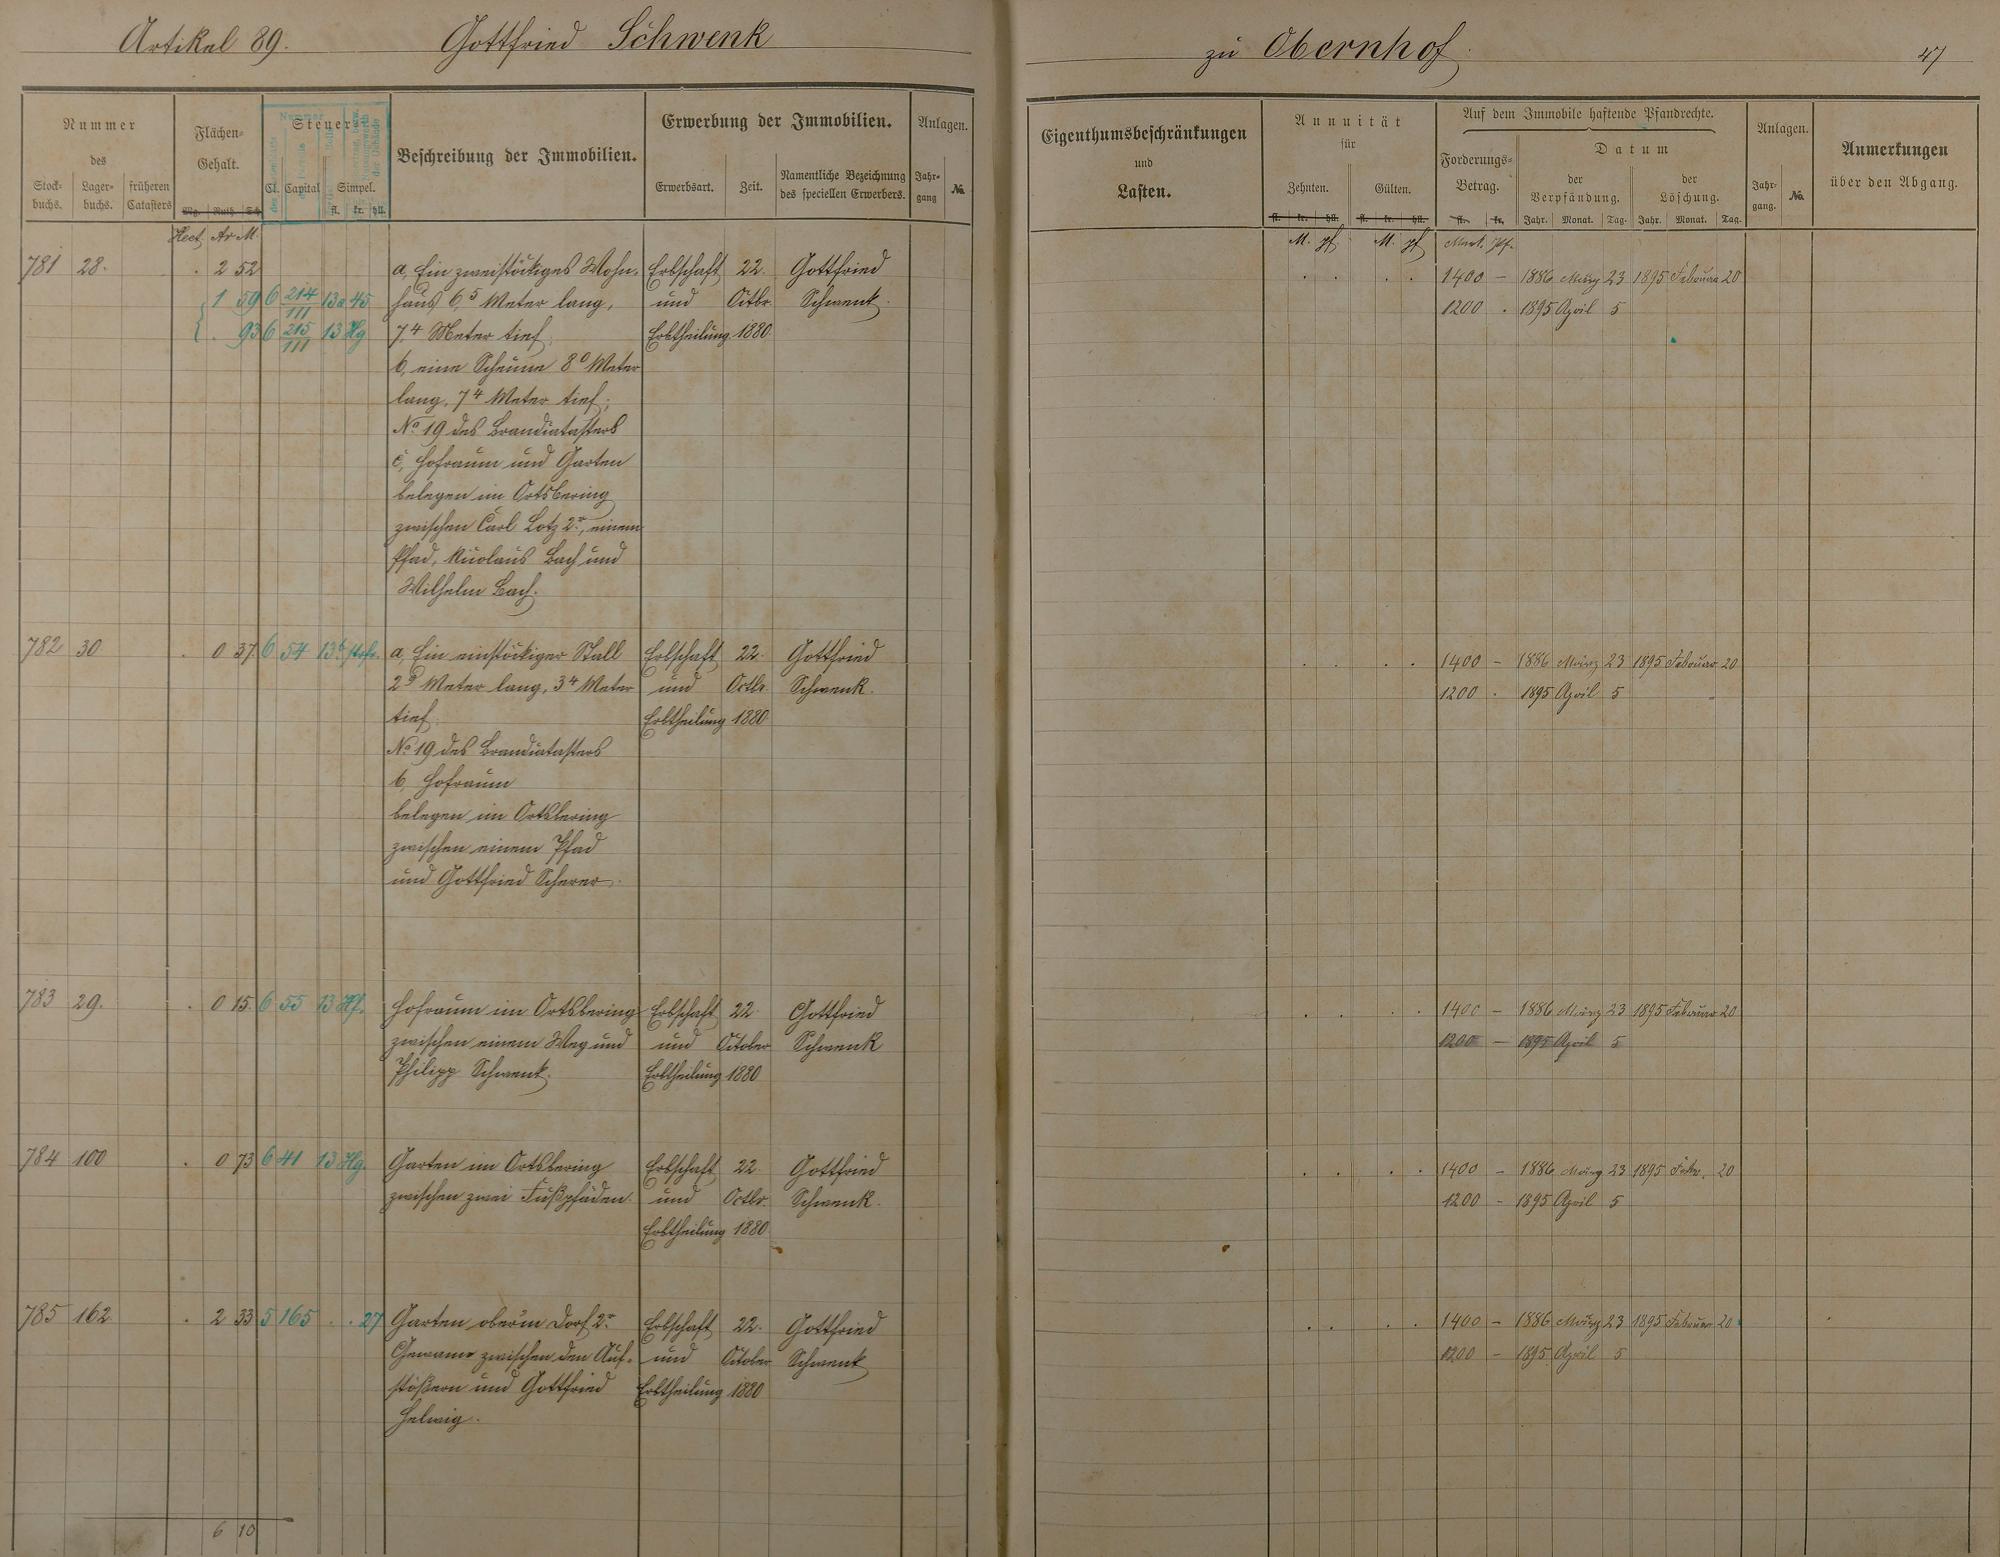 Artikel 89. Gottfried Schwenk
zu Obernhof.
47
Nummer
des
Stock-
buchs.
Lager-
buchs.
früheren
Catasters
Flächen-
Gehalt.
Mg. Ruth. Sch.
Steuer-
Cl. Capital Simpel.
fl. kr. hll.
Beschreibung der Immobilien.
Erwerbung der Immobilien.
Erwerbsart. Zeit.
Namentliche Bezeichnung
des speciellen Erwerbers.
Anlagen.
Jahr-
gang
No.
Hect. Ar M.
781 28. . 2 52 a, Ein zweistöckiges Wohn- Erbschaft 22. Gottfried
1 59 6 214/111 13a 45 haus 6,5 Meter lang, und Octbr. Schwenk.
. 93 6 215/111 13 Hg 7,4 Meter tief; Erbtheilung 1880
b, eine Scheune 8,0 Meter
lang, 7,4 Meter tief;
No 19 des Brandcatasters
c, Hofraum und Garten
belegen im Ortsbering
zwischen Carl Lotz 2r, einem
Pfad, Nicolaus Bach und
Wilhelm Bach.
782 30 . 0 37 6 54 13b a, Ein einstöckiger Stall Erbschaft 22. Gottfried
2,9 Meter lang, 3,4 Meter und Octbr. Schwenk.
tief. Erbtheilung 1880
No 19 des Brandcatasters
b, Hofraum
belegen im Ortsbering
zwischen einem Pfad
und Gottfried Scherer.
783 29. . 0 15. 6 55 13 Hf. Hofraum im Ortsbering Erbschaft 22. Gottfried
zwischen einem Weg und und October Schwenk
Philipp Schwenk. Erbtheilung 1880
784 100 . 0 73 6 41 13 Hg. Garten im Ortsbering Erbschaft 22. Gottfried
zwischen zwei Fußpfäden. und Octbr. Schwenk.
Erbtheilung 1880
785 162 . 2 33 5 165 . . 27 Garten oberm Dorf 2r Erbschaft 22. Gottfried
Gewann zwischen den Auf- und October Schwenk
stößern und Gottfried Erbtheilung 1880
Helwig.
6 10
Eigenthumsbeschränkungen
und
Lasten.
Annuität
für
Zehnten. Gülten.
fl. kr. hll. fl. kr. hll.
Auf dem Immobile haftende Pfandrechte.
Forderungs-
Betrag.
fl. kr.
Datum
der
Verpfändung.
der
Löschung.
Jahr. Monat. Tag. Jahr. Monat. Tag.
Anlagen.
Jahr-
gang.
No.
Anmerkungen
über den Abgang.
M. pf. M. pf Mark. Pf.
1400 – 1886 März 23 1895 Februar 20
1200 . 1895 April 5
1400 – 1886 März 23 1895 Februar 20
1200 . 1895 April 5
1400 – 1886 März 23 1895 Februar 20
1200 – 1895 April 5
1400 – 1886 März 23 1895 Febr. 20
1200 – 1895 April 5
1400 – 1886 März 23 1895 Februar 20
1200 – 1895 April 5